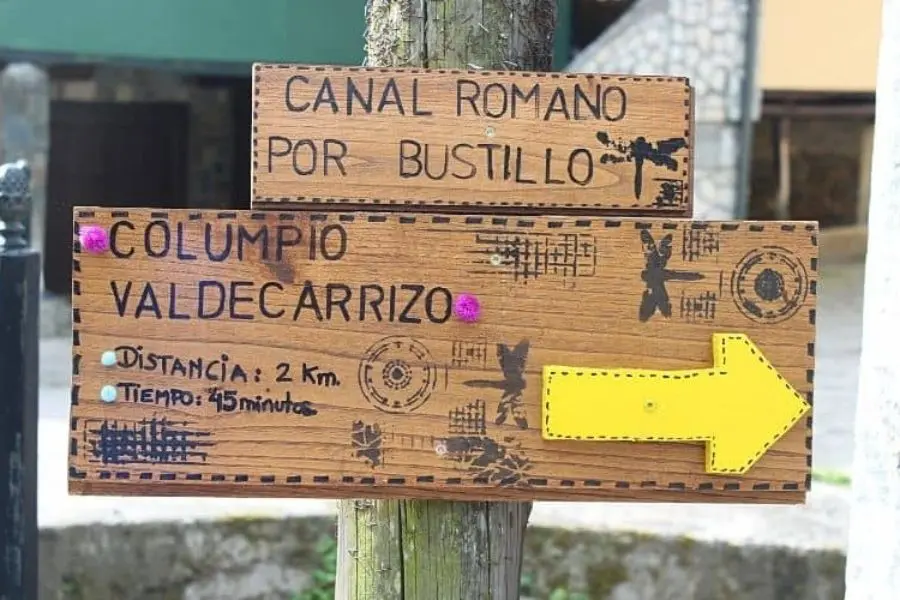 CANAL ROMANO
POR BUSTILLO
COLUMPIO
VALDECARRIZO
DISTANCIA: 2 Km.
TIEMPO: 45 minutos.